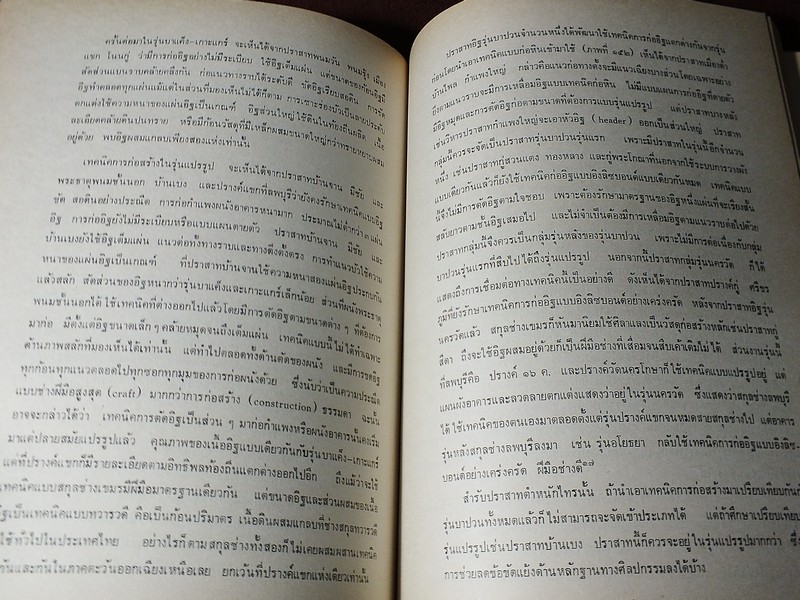 ครั้นต่อมาในรุ่นบาแค็ง-เกาะแกร์ จะเห็นได้จากปราสาทพนมวัน พนมรุ้ง เมือง
แขก โนนกู่ ว่ามีการก่ออิฐอย่างไม่มีระเบียบ ใช้อิฐเต็มแผ่น แต่ขนาดของก้อนอิฐมี
สัดส่วนแบนราบคล้ายคลึงกัน ก่อแนวทางราบได้ระดับดี ขัดอิฐเรียบสอดิน การขัด
อิฐทำตลอดทุกแผ่นแม้แต่ในส่วนที่มองเห็นไม่ได้ก็ตาม การเซาะร่องบัวเป็นลายประดับ
ตกแต่งใช้ความหนาของแผ่นอิฐเป็นเกณฑ์ อิฐส่วนใหญ่ใช้ดินในท้องถิ่นผลิต เนื้อ
ละเอียดคล้ายดินปนทราย หรือมีก้อนวัสดุที่มีเหล็กผสมขนาดใหญ่กว่าทรายหยาบผสม
อยู่ด้วย พบอิฐผสมแกลบเพียงสองแห่งเท่านั้น
เทคนิคการก่อสร้างในรุ่นแปรรูป จะเห็นได้จากปราสาทบ้านจาน มีชัย และ
พระธาตุพนมชั้นนอก บ้านเบง และปรางค์แขกที่ลพบุรีว่ายังคงรักษาเทคนิคแบบอิฐ
ขัด สอดินอย่างประณีต การก่อกำแพงผนังอาคารหนามาก ประมาณไม่ต่ำกว่า ๓ แผ่น
อิฐ การก่ออิฐยังไม่มีระเบียบหรือแบบแผนตายตัว ปราสาทบ้านจาน มีชัย และ
บ้านเบงยังใช้อิฐเต็มแผ่น แนวต่อทั้งทางราบและทางดิ่งตั้งตรง การทำแนวบัวใช้ความ
หนาของแผ่นอิฐเป็นเกณฑ์ ที่ปราสาทบ้านจานใช้ความหนาสองแผ่นอิฐประกบกัน
แล้วสลัก สัดส่วนของอิฐหนากว่ารุ่นบาแค็งและเกาะแกร์เล็กน้อย ส่วนที่ผนังพระธาตุ
พนมชั้นนอกได้ใช้เทคนิคที่ต่างออกไปแล้วโดยมีการตัดอิฐตามขนาดต่าง ๆ ที่ต้องการ
มาก่อ มีตั้งแต่อิฐขนาดเล็ก ๆ คล้ายหมุดจนถึงเต็มแผ่น เทคนิคแบบนี้ไม่ได้ทำเฉพาะ
ด้านภาพสลักที่มองเห็นได้เท่านั้น แต่ทำไปตลอดทั้งด้านตัดของผนัง และมีการขัดอิฐ
ทุกก้อนทุกแนวตลอดไปทุกซอกทุกมุมของการก่อผนังด้วย ซึ่งนับว่าเป็นความประณีต
แบบช่างฝีมือสูงสุด (craft) มากกว่าการก่อสร้าง (construction) ธรรมดา ฉะนั้น
อาจจะกล่าวได้ว่า เทคนิคการตัดอิฐเป็นส่วน ๆ มาก่อกำแพงหรือผนังอาคารนั้นคงเริ่ม
มาแต่ปลายสมัยแปรรูปแล้ว คุณภาพของเนื้ออิฐแบบเดียวกันกับรุ่นบาแค็ง-เกาะแกร์
แต่ที่ปรางค์แขกก็มีรายละเอียดตามอิทธิพลท้องถิ่นแตกต่างออกไปอีก ถึงแม้ว่าจะใช้
เทคนิคแบบสกุลช่างเขมรมีฝีมือมาตรฐานเดียวกัน แต่ขนาดอิฐและส่วนผสมของเนื้อ
อิฐเป็นเทคนิคแบบทวารวดี คือเป็นก้อนปริมาตร เนื้อดินผสมแกลบที่ช่างสกุลทวารวดี
ใช้ทั่วไปในประเทศไทย อย่างไรก็ตามสกุลช่างทั้งสองก็ไม่เคยผสมผสานเทคนิค
กันและกันในภาคตะวันออกเฉียงเหนือเลย ยกเว้นที่ปรางค์แขกแห่งเดียวเท่านั้น
ปราสาทอิฐรุ่นบาปวนจำนวนหนึ่งได้พัฒนาใช้เทคนิคการก่ออิฐแตกต่างกันจากรุ่น
ก่อนโดยนำเอาเทคนิคแบบก่อหินเข้ามาใช้ (ภาพที่ ๑๕๒) เห็นได้จากปราสาทเมืองต่ำ
บ้านไพล กำแพงใหญ่ กล่าวคือแนวก่อทางตั้งจะมีแนวเฉียงบางส่วนโดยเฉพาะอย่าง
ยิ่งตามแนวราบจะมีการเหลื่อมอิฐแบบเทคนิคก่อหิน ไม่มีแบบแผนการก่ออิฐที่ตายตัว
มีอิฐหมุดและการตัดอิฐก่อตามขนาดที่ต้องการแบบรุ่นแปรรูป แต่ปราสาทบางหลัง
เช่นวิหารปราสาทกำแพงใหญ่จะเอาหัวอิฐ (header) ออกเป็นส่วนใหญ่ ปราสาท
กลุ่มนี้ควรจะจัดเป็นปราสาทรุ่นบาปวนรุ่นแรก เพราะมีปราสาทในรุ่นนี้อีกจำนวน
หนึ่ง เช่นปราสาทกู่สวนแตง ทองหลาง และกู่พระโกณาที่นอกจากใช้ระบบการวางผัง
แบบเดียวกันแล้วก็ยังใช้เทคนิคก่ออิฐแบบอิงลิชบอนด์แบบเดียวกันหมด เทคนิคแบบ
นี้จึงไม่มีการตัดอิฐตามใจชอบ เพราะต้องรักษามาตรฐานของอิฐหนึ่งแผ่นที่จะเรียงสั้น
สลับยาวตามชั้นอิฐเสมอไป และไม่จำเป็นต้องมีการเหลื่อมอิฐตามแนวราบต่อไปด้วย
ปราสาทกลุ่มนี้จึงควรเป็นกลุ่มรุ่นหลังของรุ่นบาปวน เพราะไม่มีการต่อเนื่องกับกลุ่ม
บาปวนรุ่นแรกที่สืบไปได้ถึงรุ่นแปรรูป นอกจากนี้ปราสาทกลุ่มรุ่นนครวัด ก็ได้
แสดงถึงการเชื่อมต่อทางเทคนิคนี้เป็นอย่างดี ดังเห็นได้จากปราสาทปรางค์กู่ ศรีขร
ภูมิที่ยังรักษาเทคนิคการก่ออิฐแบบอิงลิชบอนด์อย่างเคร่งครัด หลังจากปราสาทอิฐรุ่น
นครวัดแล้ว สกุลช่างเขมรก็หันมานิยมใช้ศิลาแลงเป็นวัสดุก่อสร้างหลักเช่นปราสาทกู่
สีดา ถึงจะใช้อิฐผสมอยู่ด้วยก็เป็นฝีมือช่างที่เสื่อมจนสืบเค้าเดิมไม่ได้ ส่วนงานรุ่นนี้
ที่ลพบุรีคือ ปรางค์ ๑๖ ค. และปรางค์วัดนครโกษาก็ใช้เทคนิคแบบแปรรูปอยู่ แต่
แผนผังอาคารและลวดลายตกแต่งแสดงว่าอยู่ในรุ่นนครวัด ซึ่งแสดงว่าสกุลช่างลพบุรี
ได้ใช้เทคนิคของตนเองมาตลอดตั้งแต่รุ่นปรางค์แขกจนหมดสายสกุลช่างไป แต่อาคาร
รุ่นหลังสกุลช่างลพบุรีลงมา เช่น รุ่นอโยธยา กลับใช้เทคนิคการก่ออิฐแบบอิงลิช-
บอนด์อย่างเคร่งครัด ฝีมือช่างดี๑๗
สำรับปราสาทตำหนักไทรนั้น ถ้านำเอาเทคนิคการก่อสร้างมาเปรียบเทียบกันกับ
รุ่นบาปวนทั้งหมดแล้วก็ไม่สามารถจะจัดเข้าประเภทได้ แต่ถ้าศึกษาเปรียบเทียบ
รุ่นแปรรูปเช่นปราสาทบ้านเบง ปราสาทนี้ก็ควรจะอยู่ในรุ่นแปรรูปมากกว่า ซึ่ง
การช่วยลดข้อขัดแย้งด้านหลักฐานทางศิลปกรรมลงได้บ้าง